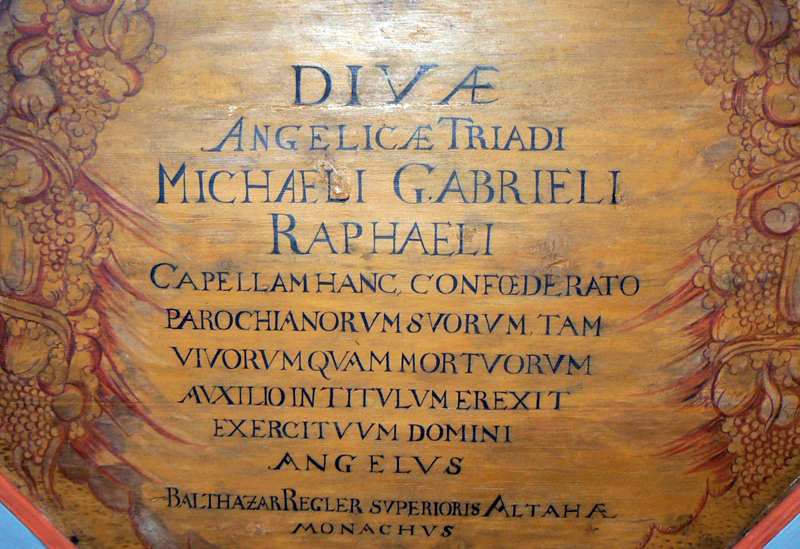 DIVÆ
ANGELICÆ TRIADI
MICHAELI GABRIELI
RAPHAELI
CAPELLAM HANC, CONFŒDERATO
PAROCHIANORVM SVORVM, TAM
VIVORVM QVAM MORTVORVM
AVXILIO IN TITVLVM EREXIT
EXERCITVVM DOMINI
ANGELVS
BALTHAZAR REGLER SVPERIORIS ALTAHÆ
MONACHVS